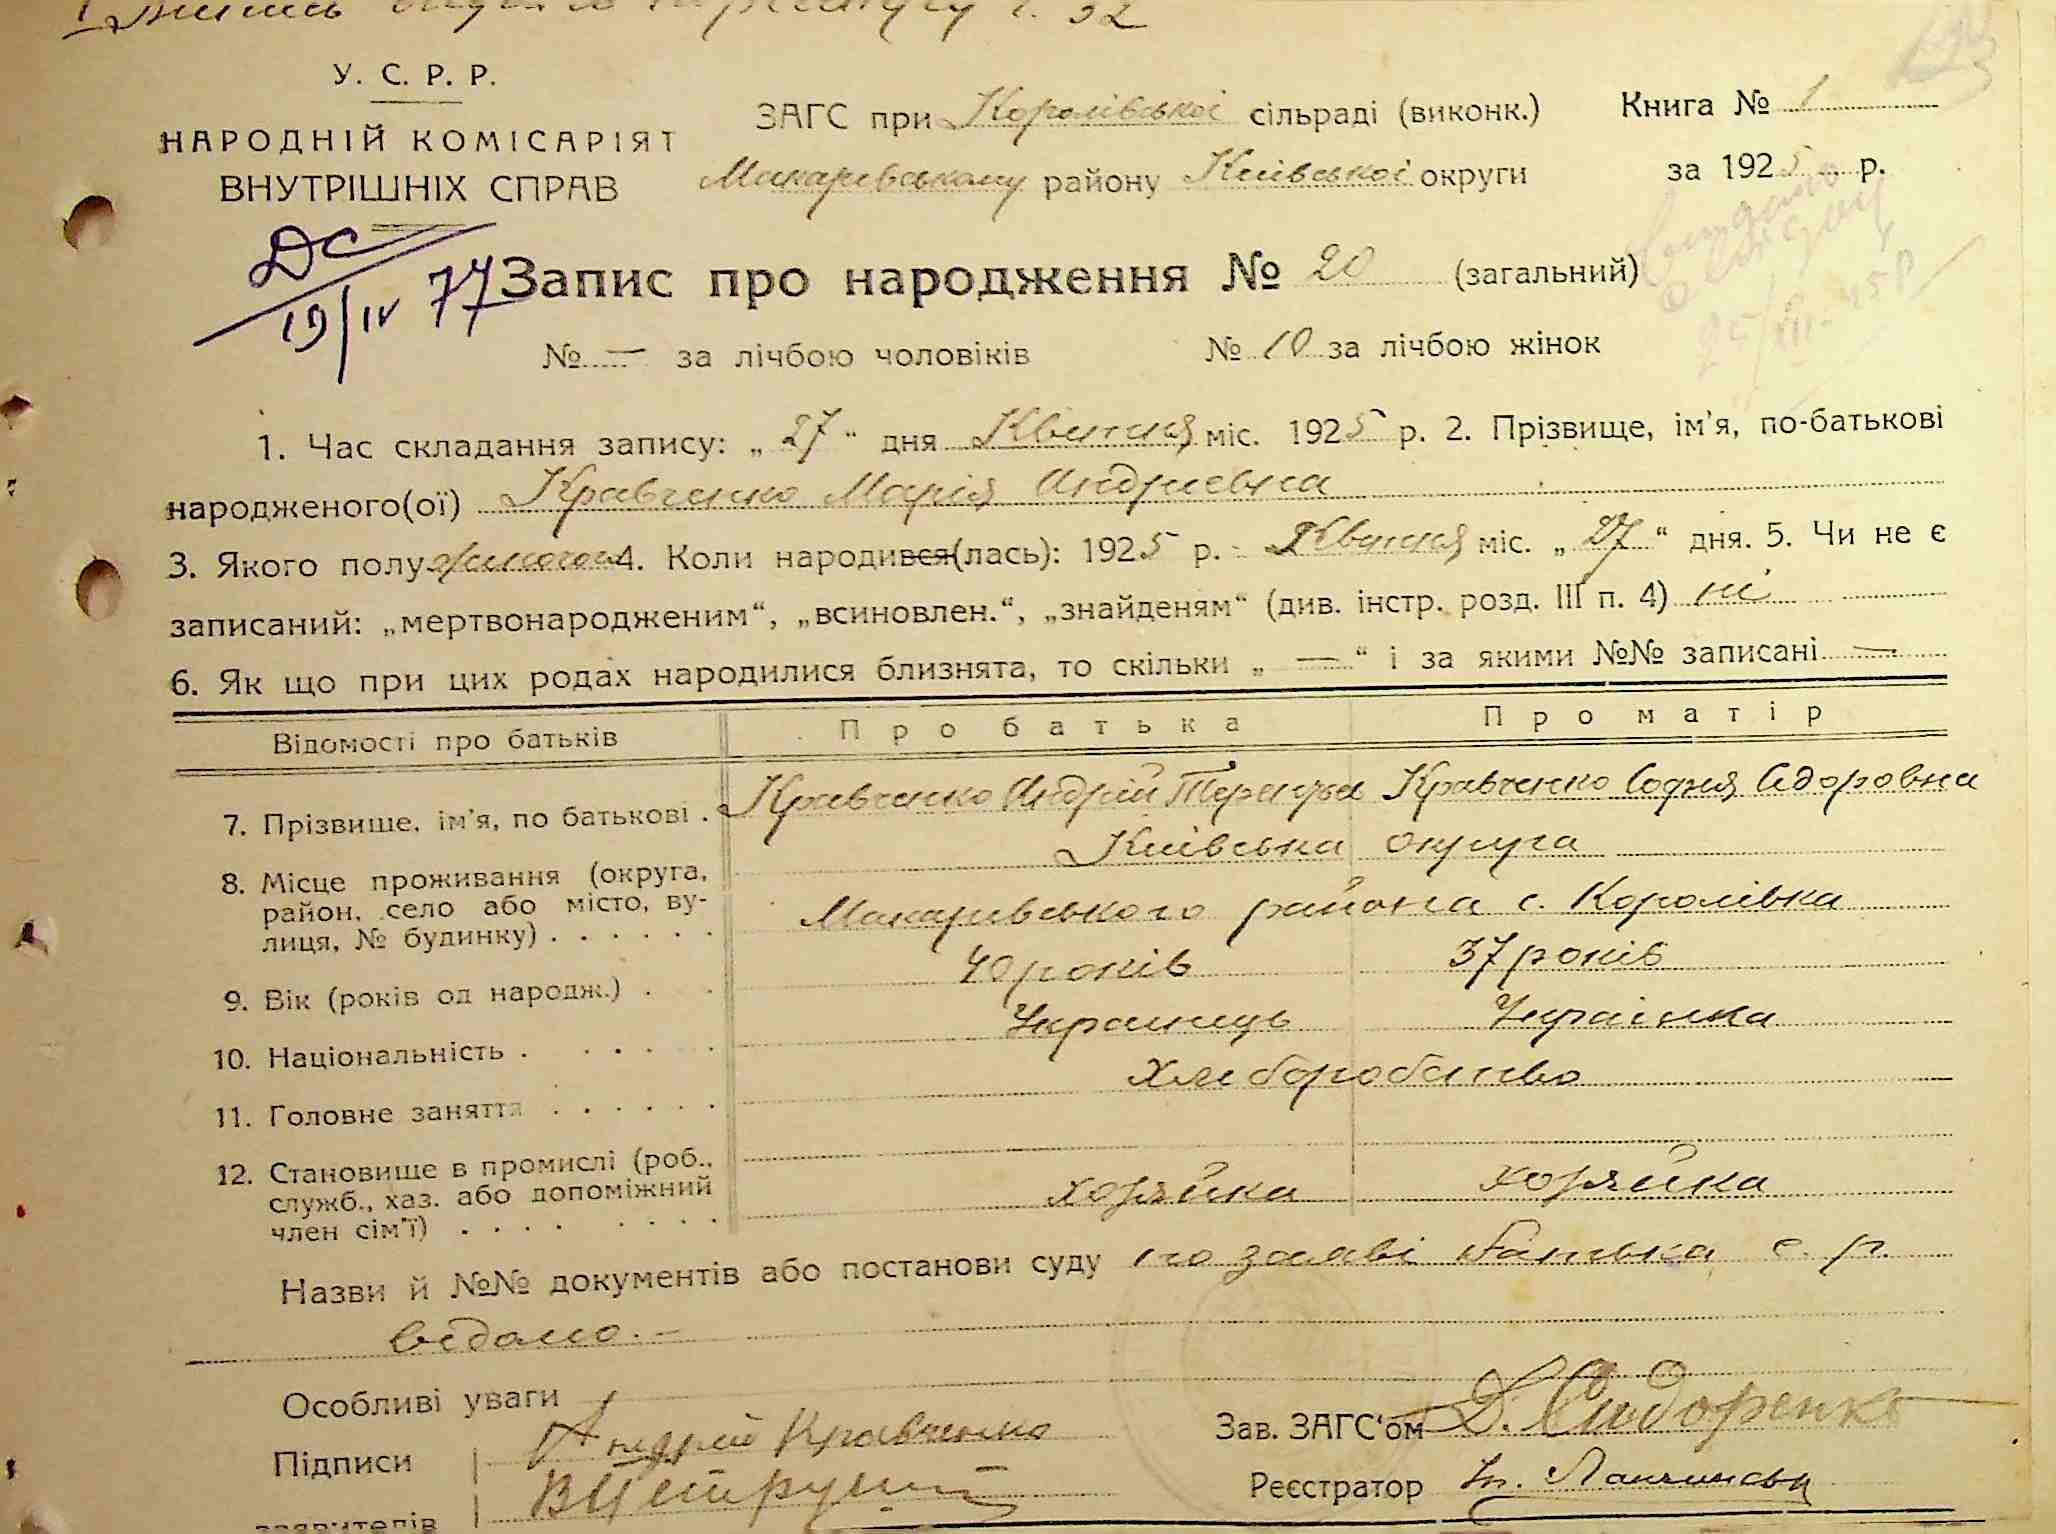 У. С. Р. Р.
НАРОДНІЙ КОМІСАРІЯТ
ВНУТРІШНІХ СПРАВ
ЗАГС при Королівської сільраді (виконк.)
Макарівському району Київської округи
Книга № 1
за 1925 р.
ДС
19/IV 77
Запис про народження № 20 (загальний)
№ — за лічбою чоловіків № 10 за лічбою жінок
1. Час складання запису: „ 27 “ дня Квітня міс. 1925 р. 2. Прізвище, ім’я, по-батькові
народженого(ої) Кравченко Марія Андриєвна
3. Якого полу жіночого 4. Коли народився(лась): 1925 р. Квітня міс. „ 27 “ дня. 5. Чи не є
записаний: „мертвонародженим“, „всиновлен.“, „знайденям“ (див. інстр. розд. III п. 4) ні
6. Як що при цих родах народилися близнята, то скільки „ — “ і за якими №№ записані —
Відомості про батьків Про батька Про матір
7. Прізвище, ім’я, по батькові . Кравченко Андрій Кравченко Софія Сідоровна
Київська округа
8. Місце проживання (округа,
район, село або місто, ву-
лиця, № будинку) . . . . . .
Макарівського района с. Королівка
9. Вік (років од народж.) . . 40 років 37 років
10. Національність . . . . . Українець Українка
11. Головне заняття . . . . . . Хліборобство
12. Становище в промислі (роб.,
служб., хаз. або допоміжний
член сім’ї) . . . . . . . .
хозяйка хозяйка
Назви й №№ документів або постанови суду по заяві батька с. р.
відомо. –
Особливі уваги
Підписи Андрій Кравченко
заявителів
Зав. ЗАГС‘ом Д. Сидоренко
Реєстратор